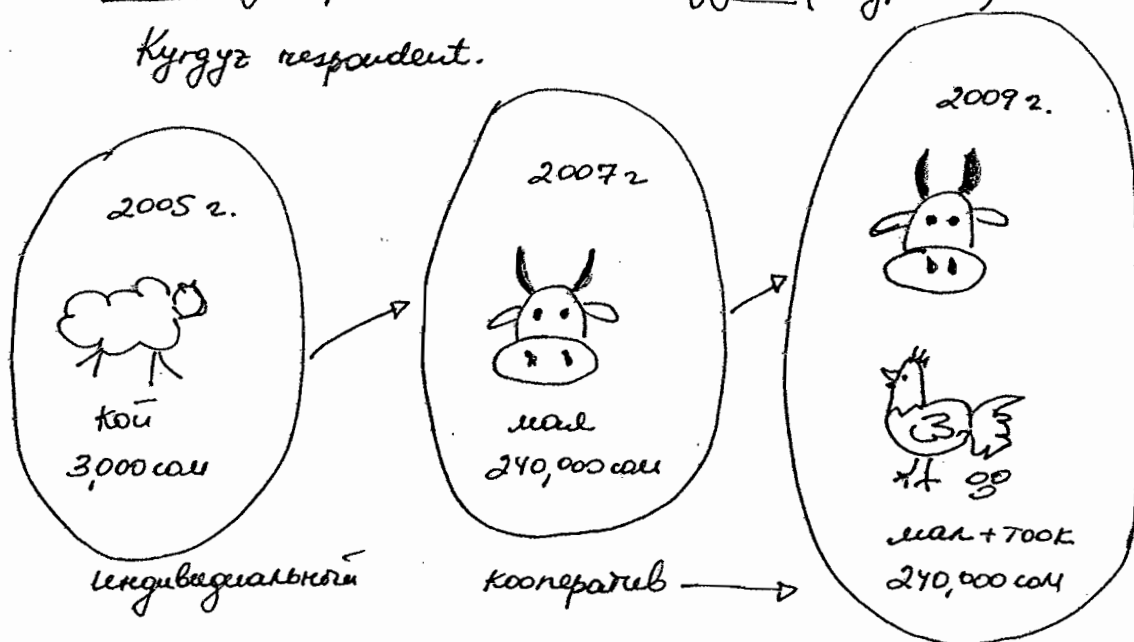 Kyrgyz respondent.
2005 г.
кой
3,000 сом
индивидиальный
2007 г
мал
240,000 сом
кооператив
2009 г.
мал + тоок
240,000 сом